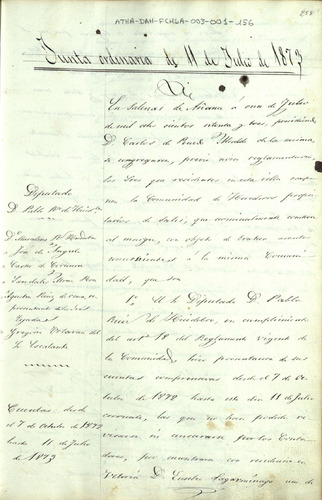 ATHA-DAH-FCHLA-003-001-156
258
Junta ordinaria de 11 de Julio de 1873
En Salinas de Añana a once de Julio
de mil ochocientos setenta y tres, presidiendo
D. Carlos de Alcalde de la misma,
se congregaron, previo aviso reglamentario
los Sres. que residentes en esta villa
la Comunidad de Herederos propie
tarios de sales, que nominalmente constan
al margen, con objeto de tratar asuntos
concernientes a la misma Comuni
dad, que son
1º El Sr. Diputado D. Pablo
Ruiz de en cumplimiento
del artº 18 del Reglamento vigente de
la Comunidad, hizo presentacion de sus
cuentas comprensivas desde el 7 de Oc
tubre de 1872 hasta este dia 11 de Julio
corriente, las que no han podido re
visarse ni censurarse por los Conta
dores, por encontrarse con residencia en
Vitoria D. Eusebio uno de
Diputado
D. Pablo
D.
José de
Carlos de
Ruiz de
presentante de
Gregorio del
Escalante
Cuentas desde
7 de Octubre de 1872
hasta 11 de Julio
de 1873